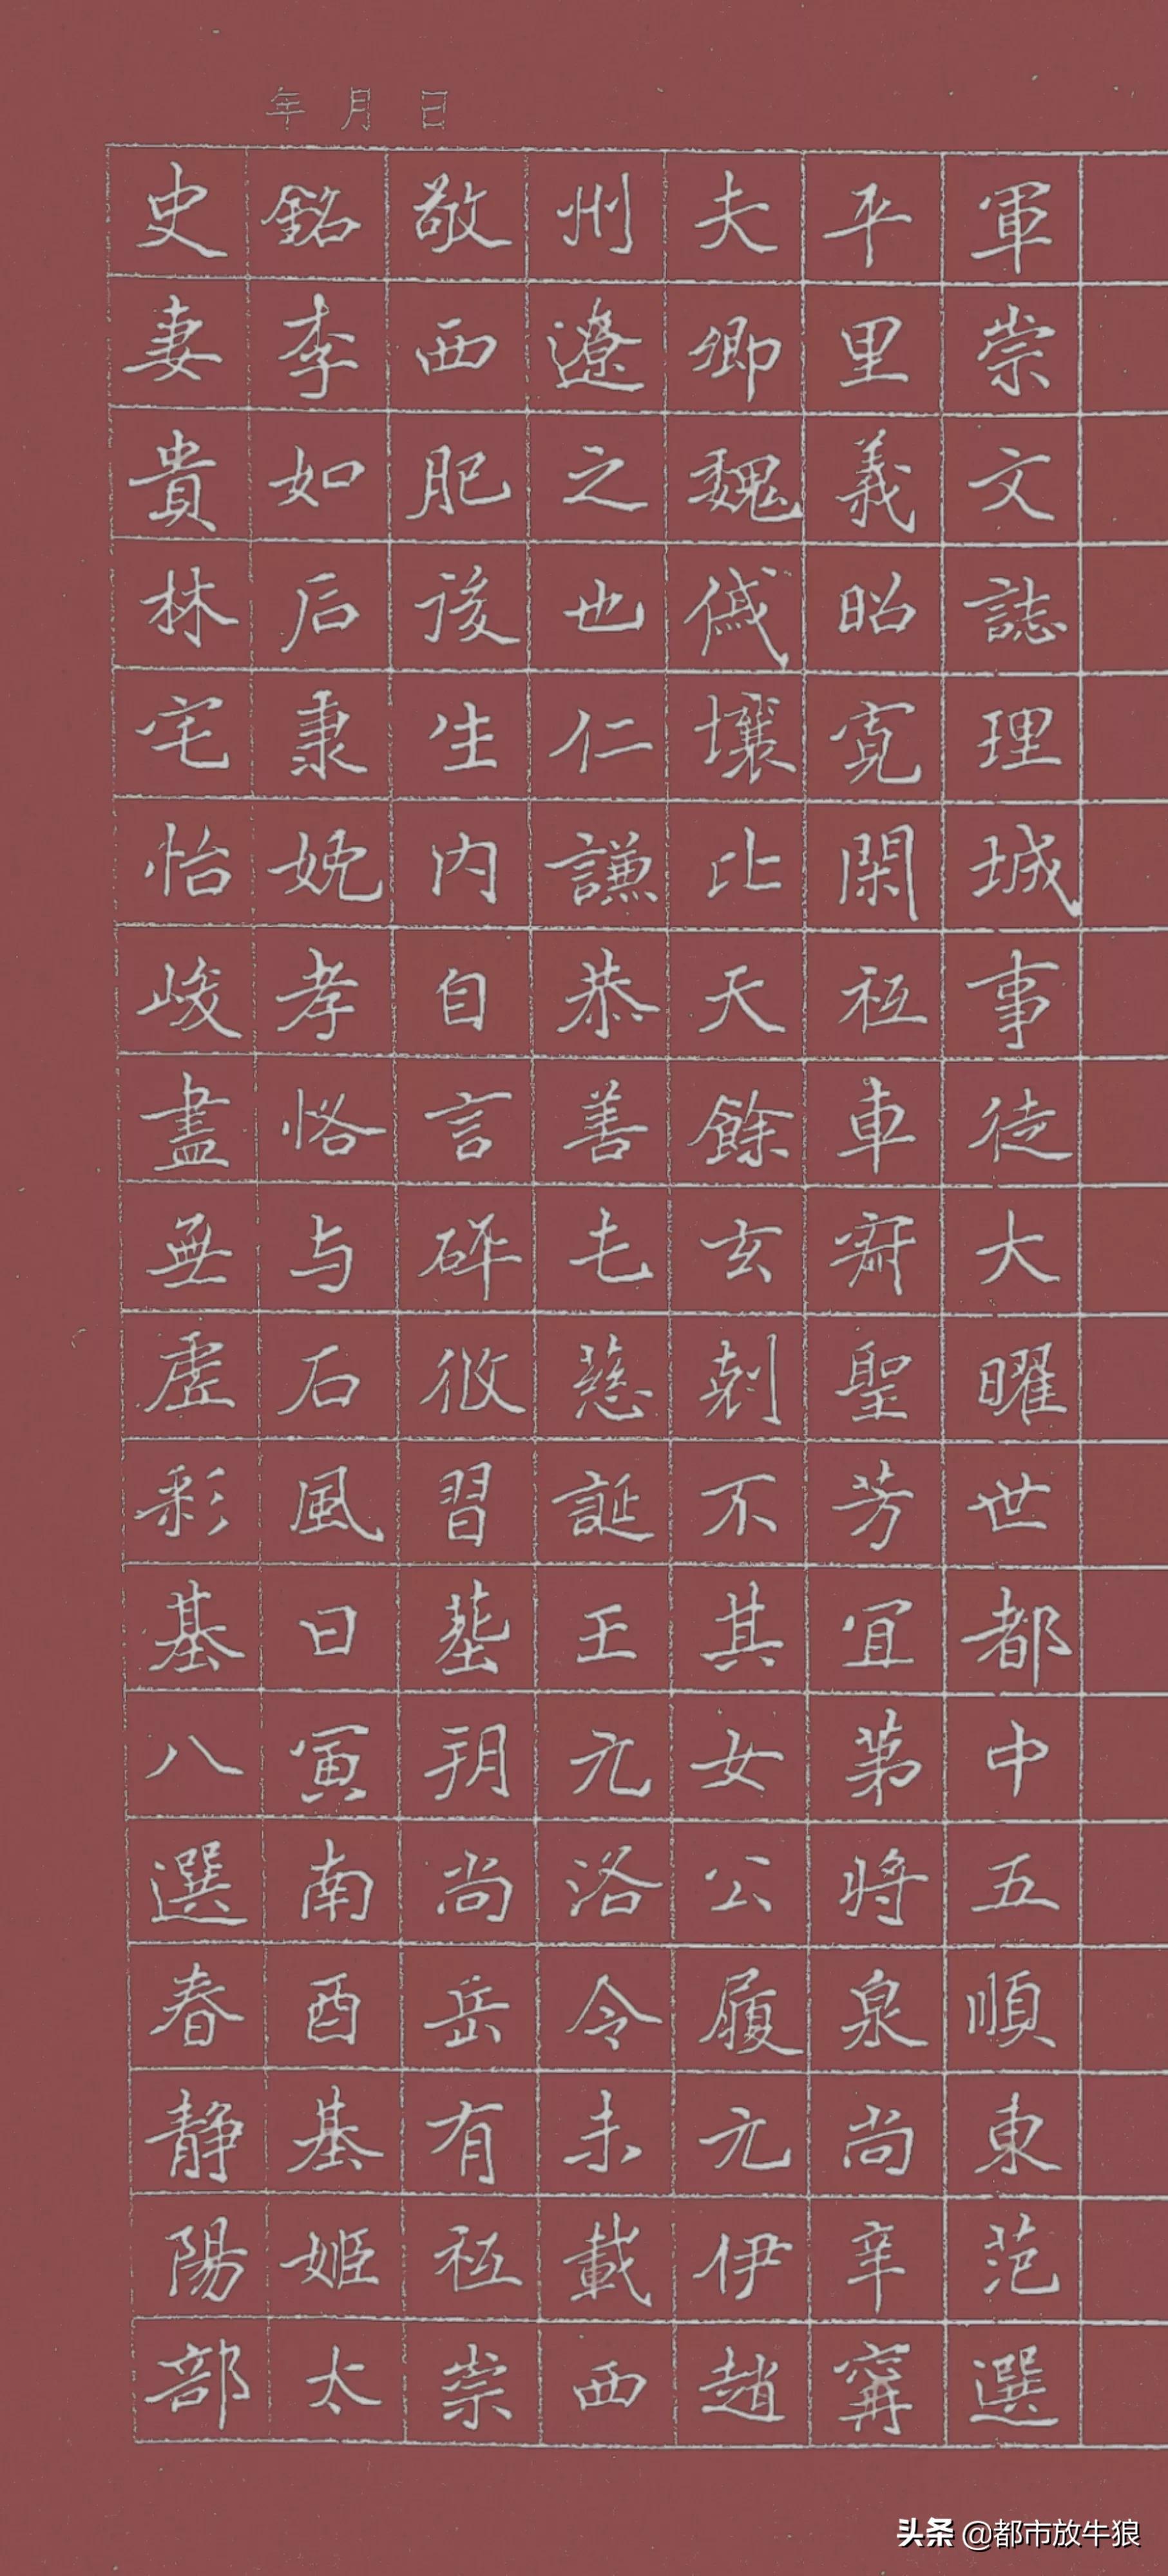 年 月 日
軍崇文誌理城事徒大曜世都中五順東范選
平里義昭寬閑祖車府聖芳宜第將泉尚辛寗
夫卿魏壤比天餘玄剋不其女公履元伊趙
州遼之也仁謙恭善七慈誕王元洛令未載西
敬西肥後生内自言碎攸習葬玥尚岳有祖崇
銘李如后隶婉孝恪与石風日寅南酉基姬太
史妻貴林宅怡峻盡無虛彩基八選春静陽部
头条 @都市放牛狼